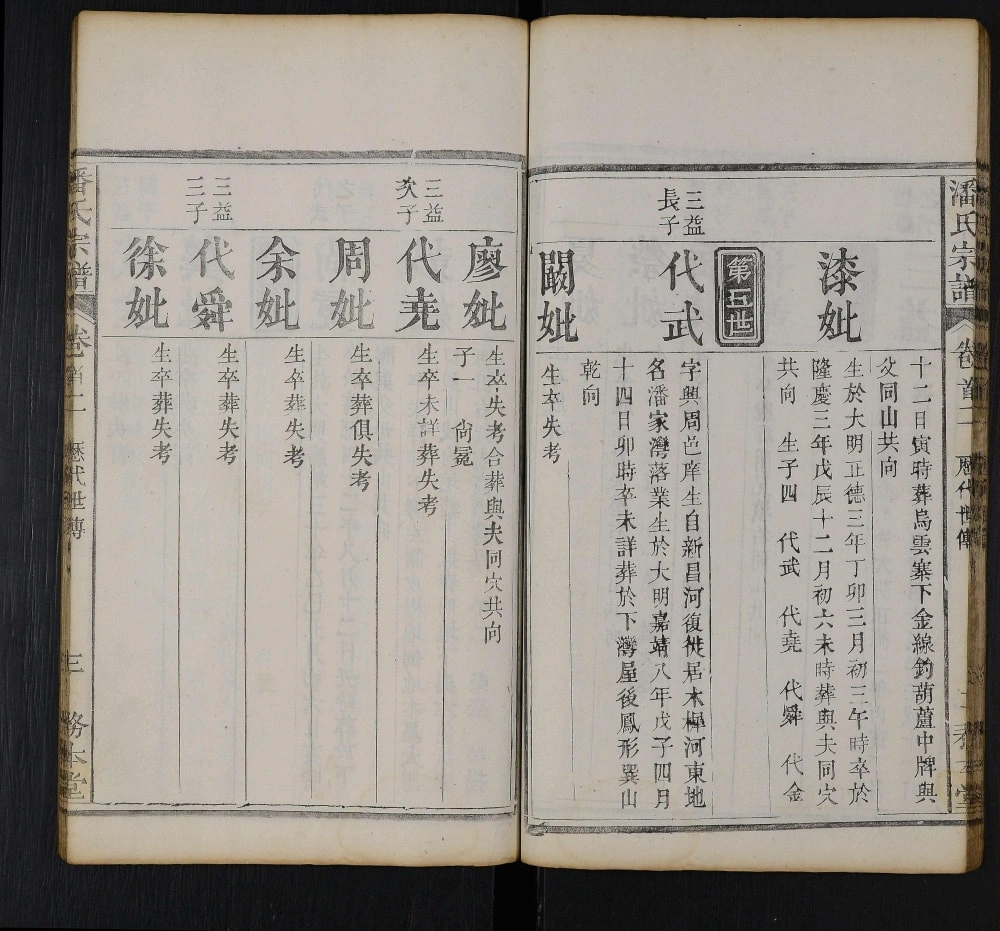 潘氏宗譜
卷首二
歷代世傳
十二日寅時葬烏雲寨下金線釣葫蘆中牌與
父同山共向
漆妣
生於大明正德三年丁卯三月初三午時卒於
隆慶三年戊辰十二月初六未時葬與夫同穴
共向 生子四 代武 代堯 代舜 代金
第五世
三益
長子
代武
字興周邑庠生自新昌河復徙居木樨河東地
名潘家灣落業生於大明嘉靖八年戊子四月
十四日卯時卒未詳葬於下灣屋後鳳形巽山
乾向
闞妣
生卒失考
廖妣
生卒失考合葬與夫同穴共向
子一 尙冕
三益
次子
代堯
生卒未詳葬失考
周妣
生卒葬俱失考
余妣
生卒葬失考
三益
三子
代舜
生卒葬失考
徐妣
生卒葬失考
潘氏宗譜
卷首二
歷代世傳
三
務本堂